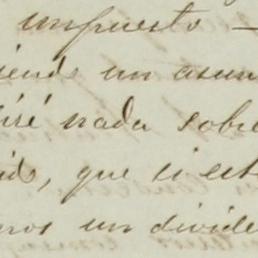 impuesto —
iendo un asun
iré nada sobre
ido, que si est
mos un divide